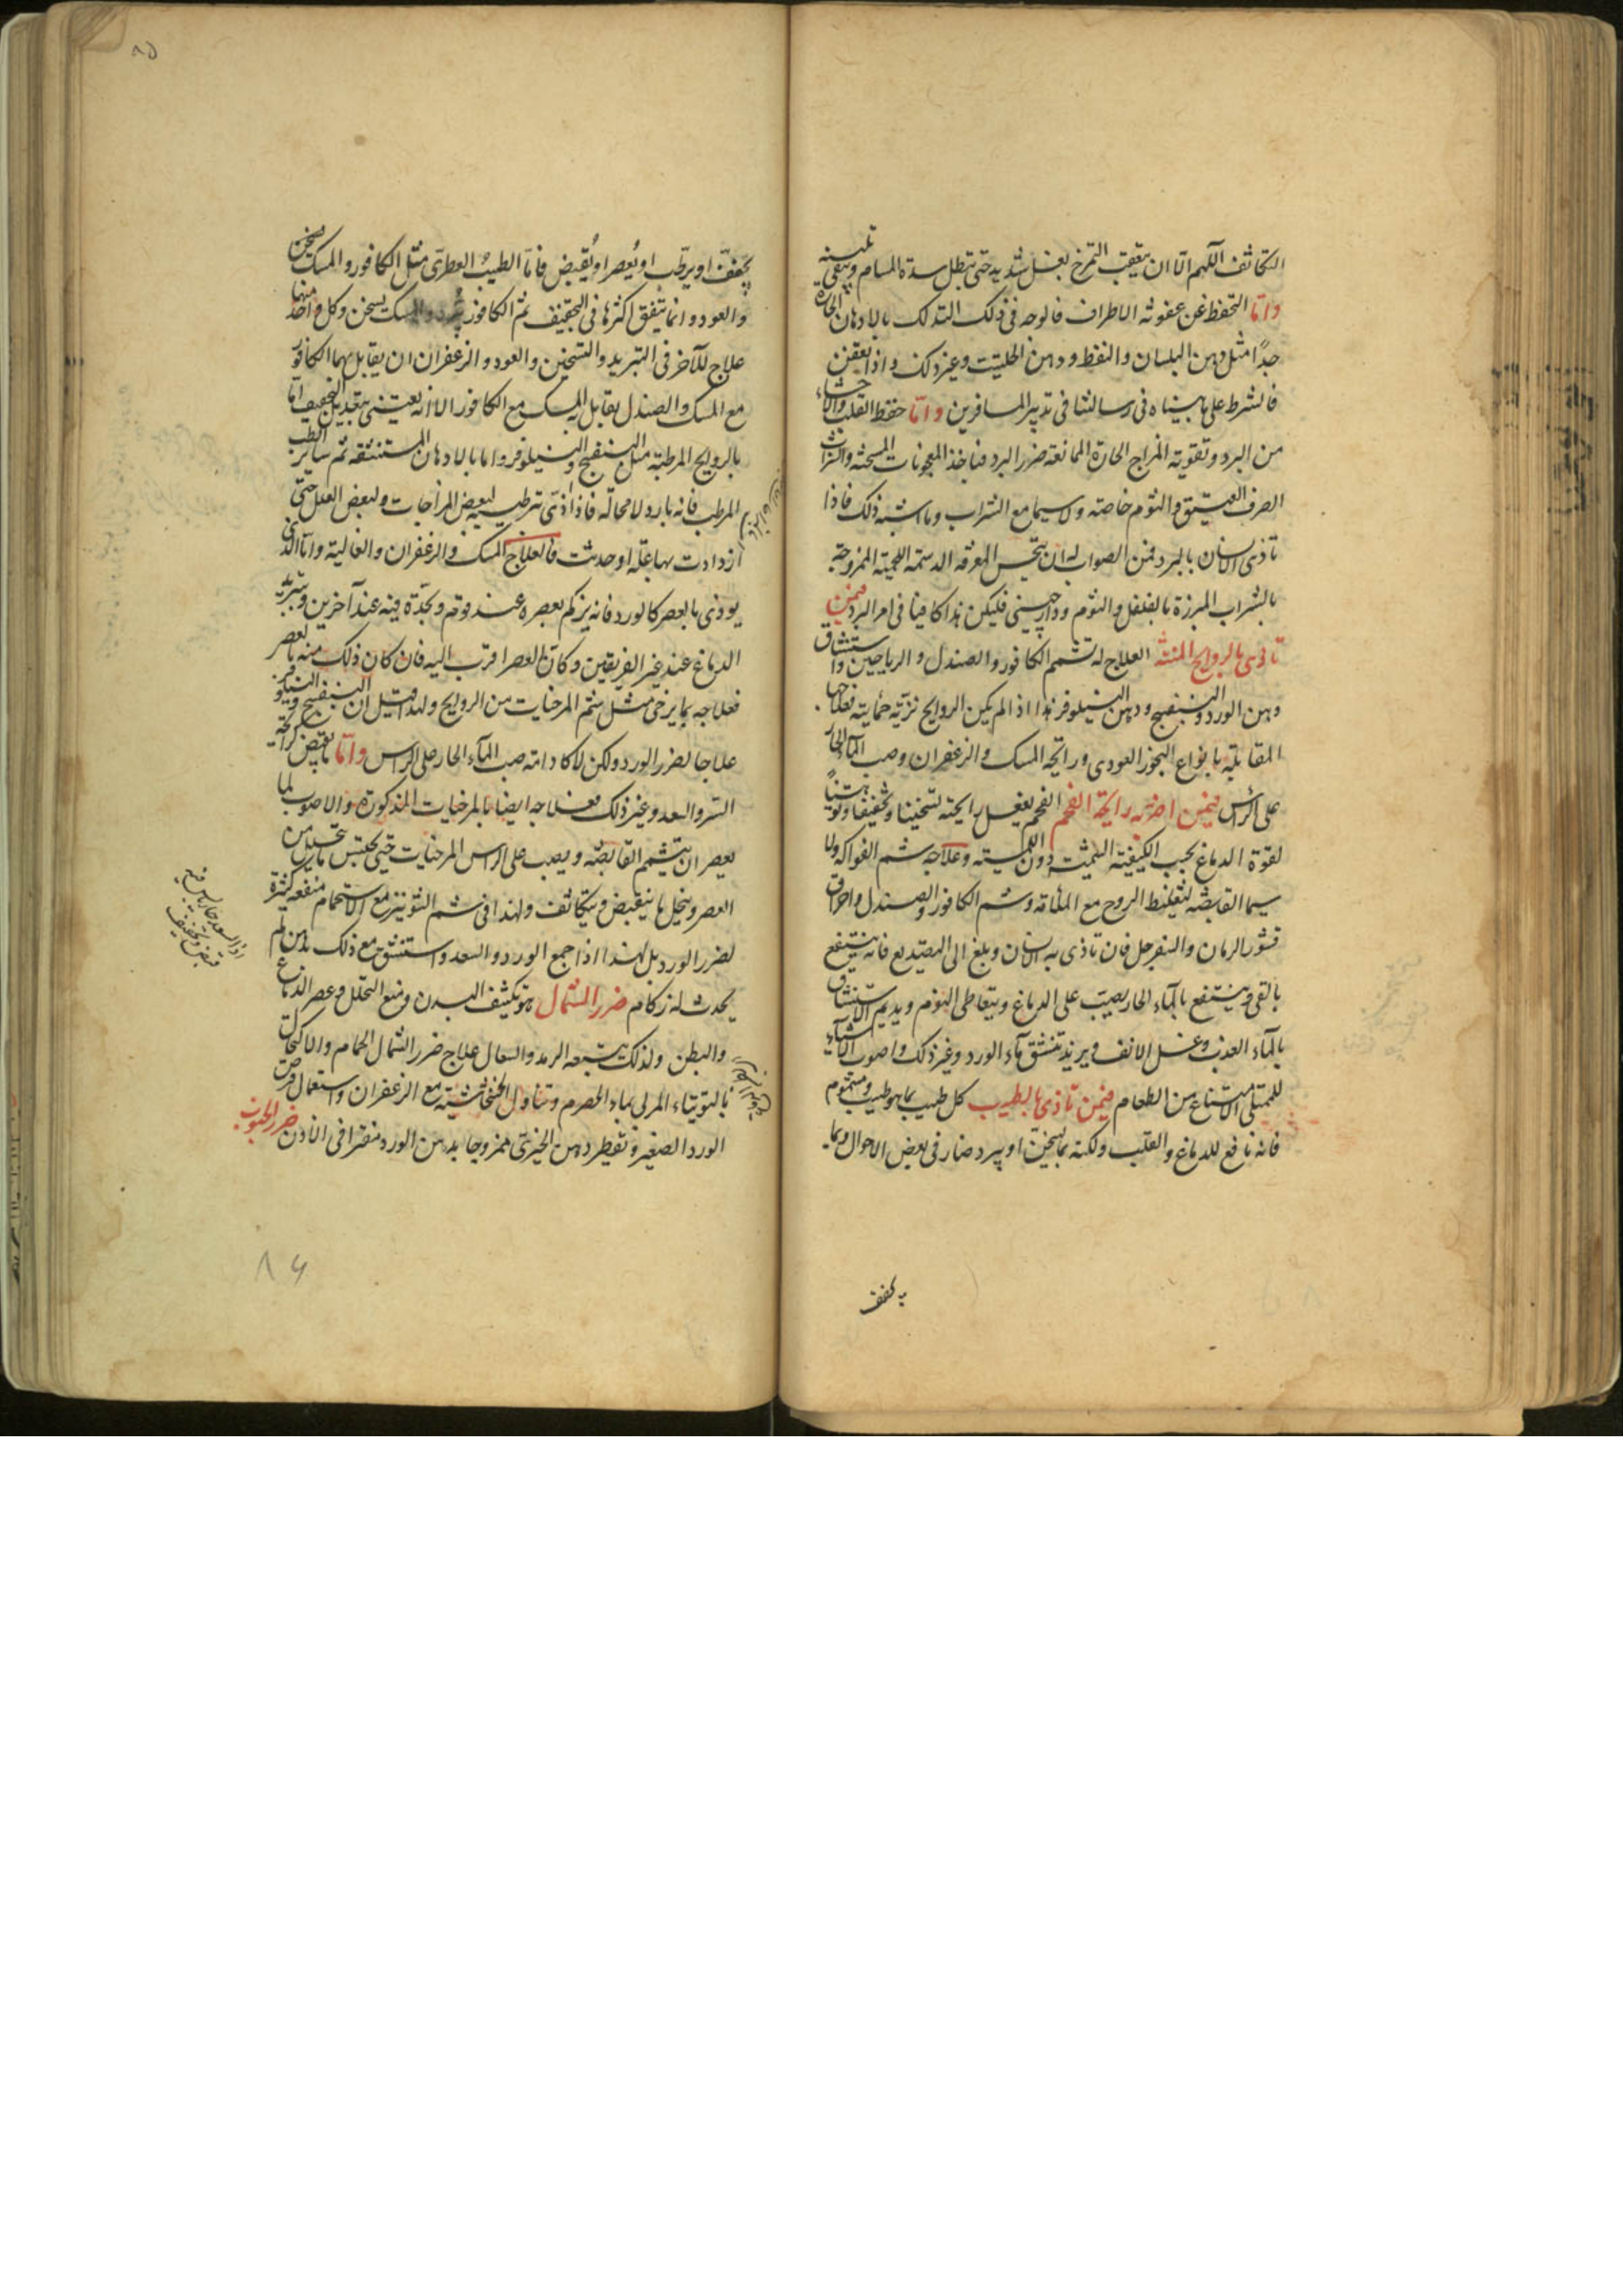 التكاثف اللهم الا ان يتعقب التمرخ بغسل شديد حتى تبطل سدة المسام ويبقى تليينه
واما التحفظ عن عفونة الاطراف فالوجه فى ذلك التدلك بالادهان الحارة
جدًا مثل دهن البلسان والنفط ودهن الحلتيت وغير ذلك واذا تعفن
فالشرط على ما بيناه فى رسالتنا فى تدبير المسافرين واما حفظ القلب والاحشاء
من البرد وتقوية المزاج الحارة الممانعة ضرر البرد فباخذ المعجونات المسخنة والشراب
الصرف العتيق والثوم خاصة ولا سيما مع الشراب وما اشبه ذلك فاذا
تاذى الانسان بالبرد فمن الصواب له ان يتحسى المرقة الدسمة اللحمية الممزوجة
بالشراب المبزرة بالفلفل والثوم ودارچينى فليكن هذا كافيا فى امر البرد فيمن
تاذى بالروايح المنتنة العلاج له تشمم الكافور والصندل والرياحين واستنشاق
دهن الورد والبنفسج ودهن النيلوفر هذا اذا لم يكن الروايح نزية حمائية فعلاجها
المقابلة بانواع البخور العودى ورايحة المسك والزعفران وصب الماء الحار
على الراس فيمن اضر به رايحة الفحم الفحم يفعل رايحته تسخينا وتجفيفا وتوهينًا
لقوة الدماغ بحسب الكيفية السمية دون الكمية وعلاجه شم الفواكه ولا
سيما القابضة لتغليظ الروح مع الملائمة وشم الكافور والصندل واحراق
قشور الرمان والسفرجل فان تاذى به الانسان وبلغ الى التصديع فانه ينتفع
بالقى وينتفع بالماء الحار يصب على الدماغ ويتعاطى النوم ويديم الاستنشاق
بالماء العذب وغسل الانف ويريد تنشق ماء الورد وغير ذلك واصوب الاشياء
للممتلى الامتناع من الطعام فيمن تاذى بالطيب كل طيب بما هو طيب ومشموم
فانه نافع للدماغ والقلب ولكنه بما يسخن او يبرد ضار فى بعض الاحوال وبما
يجفف
٨٥
يجفف او يرطب او يعصر او يقبض فاما الطيب العطرى مثل الكافور والمسك يسخن
والعود وانما يتفق اكثرها فى التجفيف ثم الكافور يبرد والمسك يسخن وكل واحد منهما
علاج للآخر فى التبريد والتسخين والعود والزعفران ان يقابل بهما الكافور
مع المسك والصندل يقابل المسك مع الكافور الا انه يعتنى بتعديل التجفيف اما
بالروايح المرطبة مثل البنفسج والنيلوفر واما بالادهان المستنشقة ثم ساير الطيب
المرطب فانه بارد لا محالة فاذا اذى ترطيبه لبعض المزاجات ولبعض العلل حتى
ازدادت بها علة او حدثت فالعلاج المسك والزعفران والغالية واما الذى
يوذى بالعصر كالورد فانه يزكم بعصره عند قوم وبحدة فيه عند آخرين وتبريد
الدماغ عند غير الفريقين وكان العصر اقرب اليه فان كان ذلك منه بالعصر
فعلاجه بما يرخى مثل شم المرخيات من الروايح ولهذا قيل ان البنفسج والنيلوفر
علاجا لضرر الورد ولكن لا كادامة صب الماء الحار على الراس واما ما يقبض كرايحة
السرو السعد وغير ذلك فعلاجه ايضا بالمرخيات المذكورة والاصوب لما
يعصر ان يتشمم القابضة ويصب على الراس المرخيات حتى يحتبس ما يتحلل من
العصر وينحل ما ينقبض ويتكاثف ولهذا فى شم الشونيز مع الاستحمام منفعة كثيرة
لضرر الورد بل لهذا اذا جمع الورد والسعد واستنشق مع ذلك بدهن لم
يحدث له زكام ضرر الشمال هو تكثيف البدن ومنع التحلل وعصر الدماغ
والبطن ولذلك يتبعه الرمد والسعال علاج ضرر الشمال الحمام والاكتحال
بالتوتياء المربى بماء الحصرم وتناول الخشخاشية مع الزعفران واستعمال قرص
الورد الصغير وتقطير دهن الخيرى ممزوجا بدهن الورد مفترا فى الاذن ضرر الجنوب
اذ السعد حار يابس فيه
قبض وتجفيف
٨٤